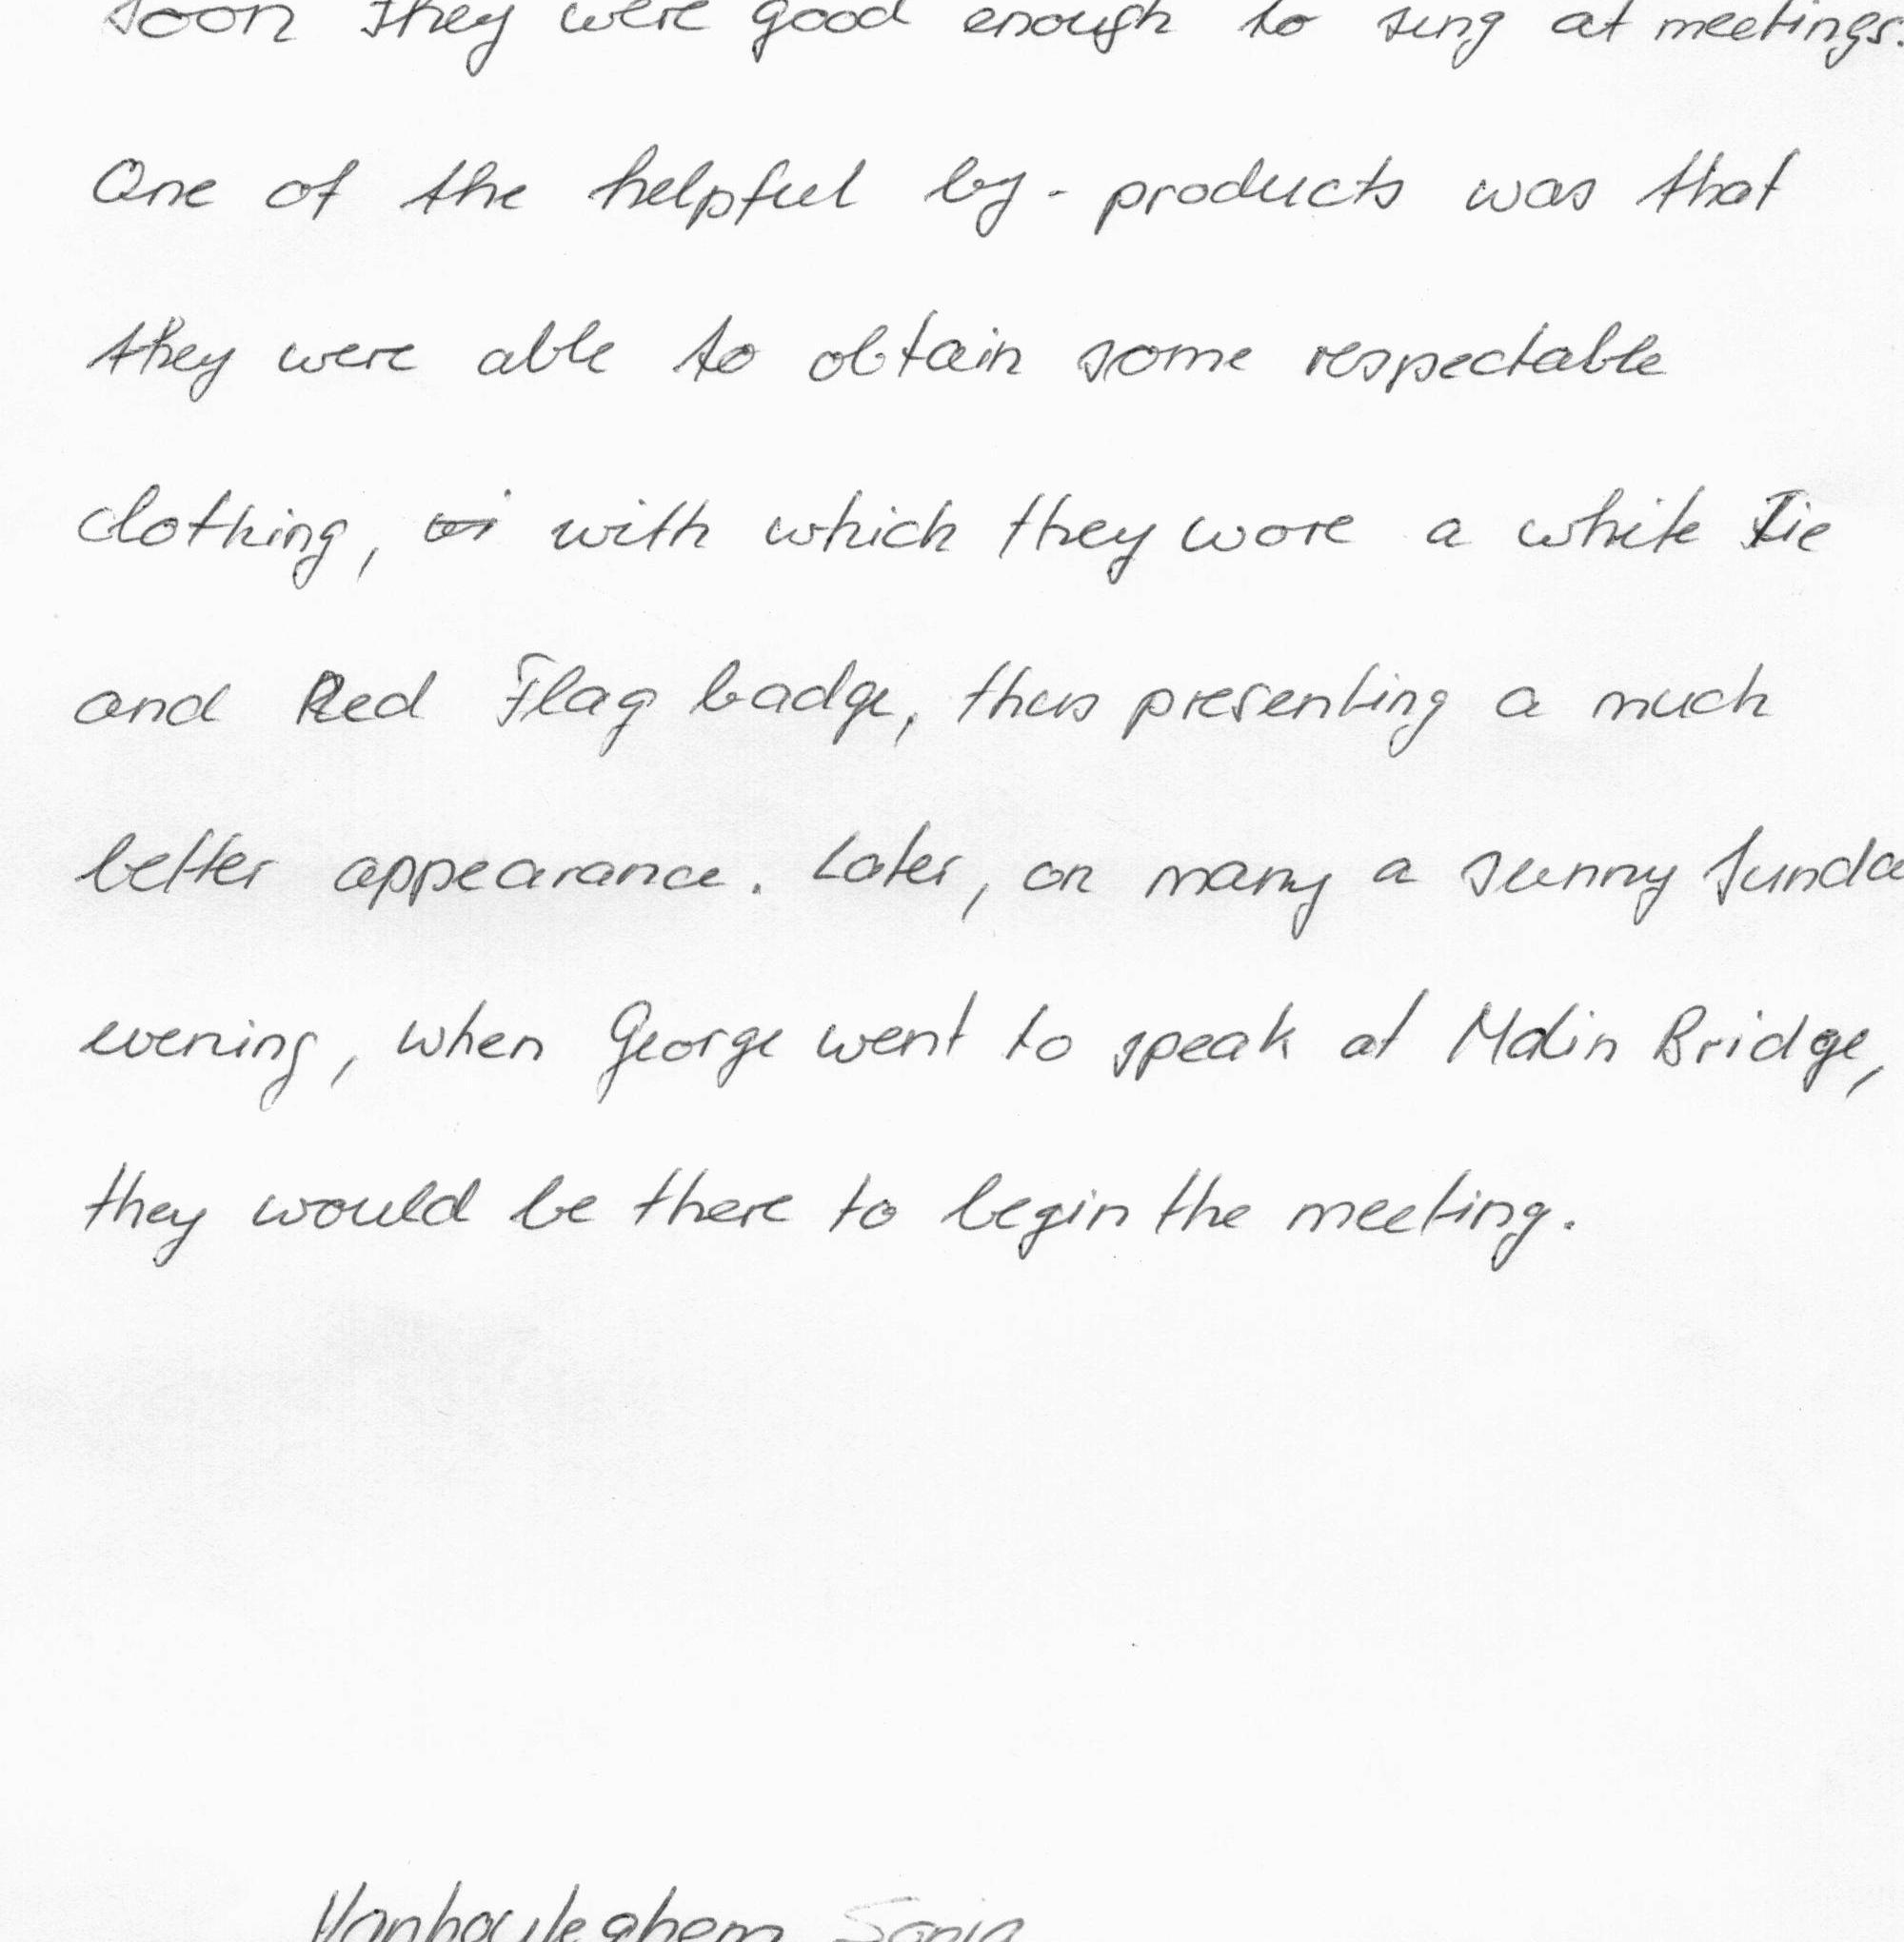 soon they were good enough to sing at meetings.
One of the helpful by-products was that
they were able to obtain some respectable
clothing, with which they wore a white Tie
and Red Flag badge, thus presenting a much
better appearance. Later, on many a sunny Sunda
evening, when George went to speak at Malin Bridge,
they would be there to begin the meeting.
Sonia